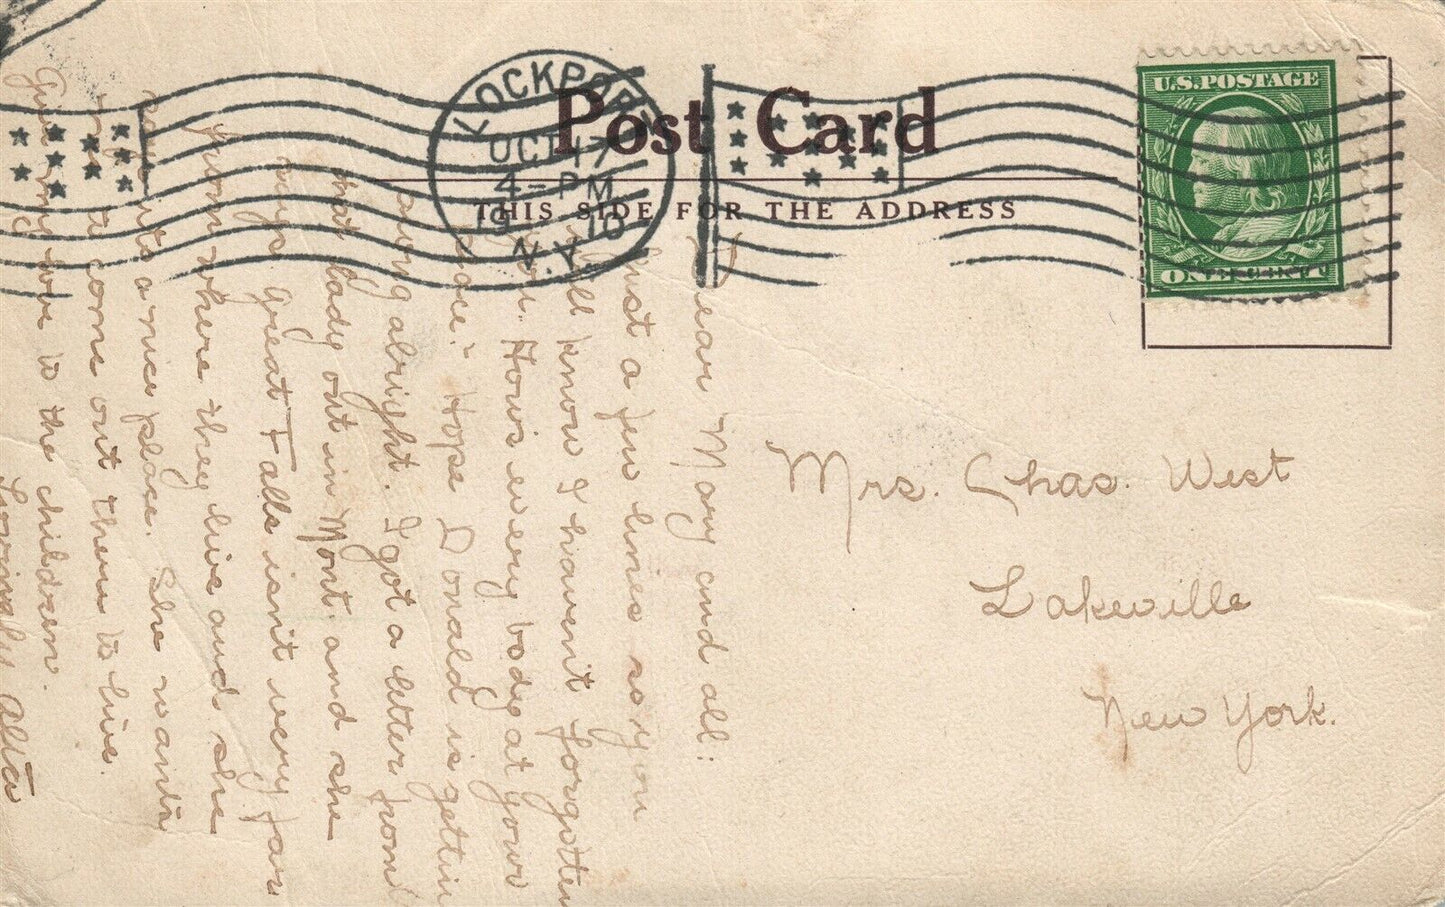 LOCKPORT
OCT 17
4 - PM
1910
N.Y.
Post Card
THIS SIDE FOR THE ADDRESS
U.S. POSTAGE
ONE CENT
Mrs. Chas. West
Lakeville
New York.
Dear Mary and all:
Just a few lines so you
will know I haven't forgotten
you. How's every body at your
place? Hope Donald is gettin
along alright. I got a letter from
that lady out in Mont. and she
says Great Falls isn't very far
from where they live and she
says its a nice place. She wants
us to come out there to live.
Give my love to the children.
Lovingly Alta